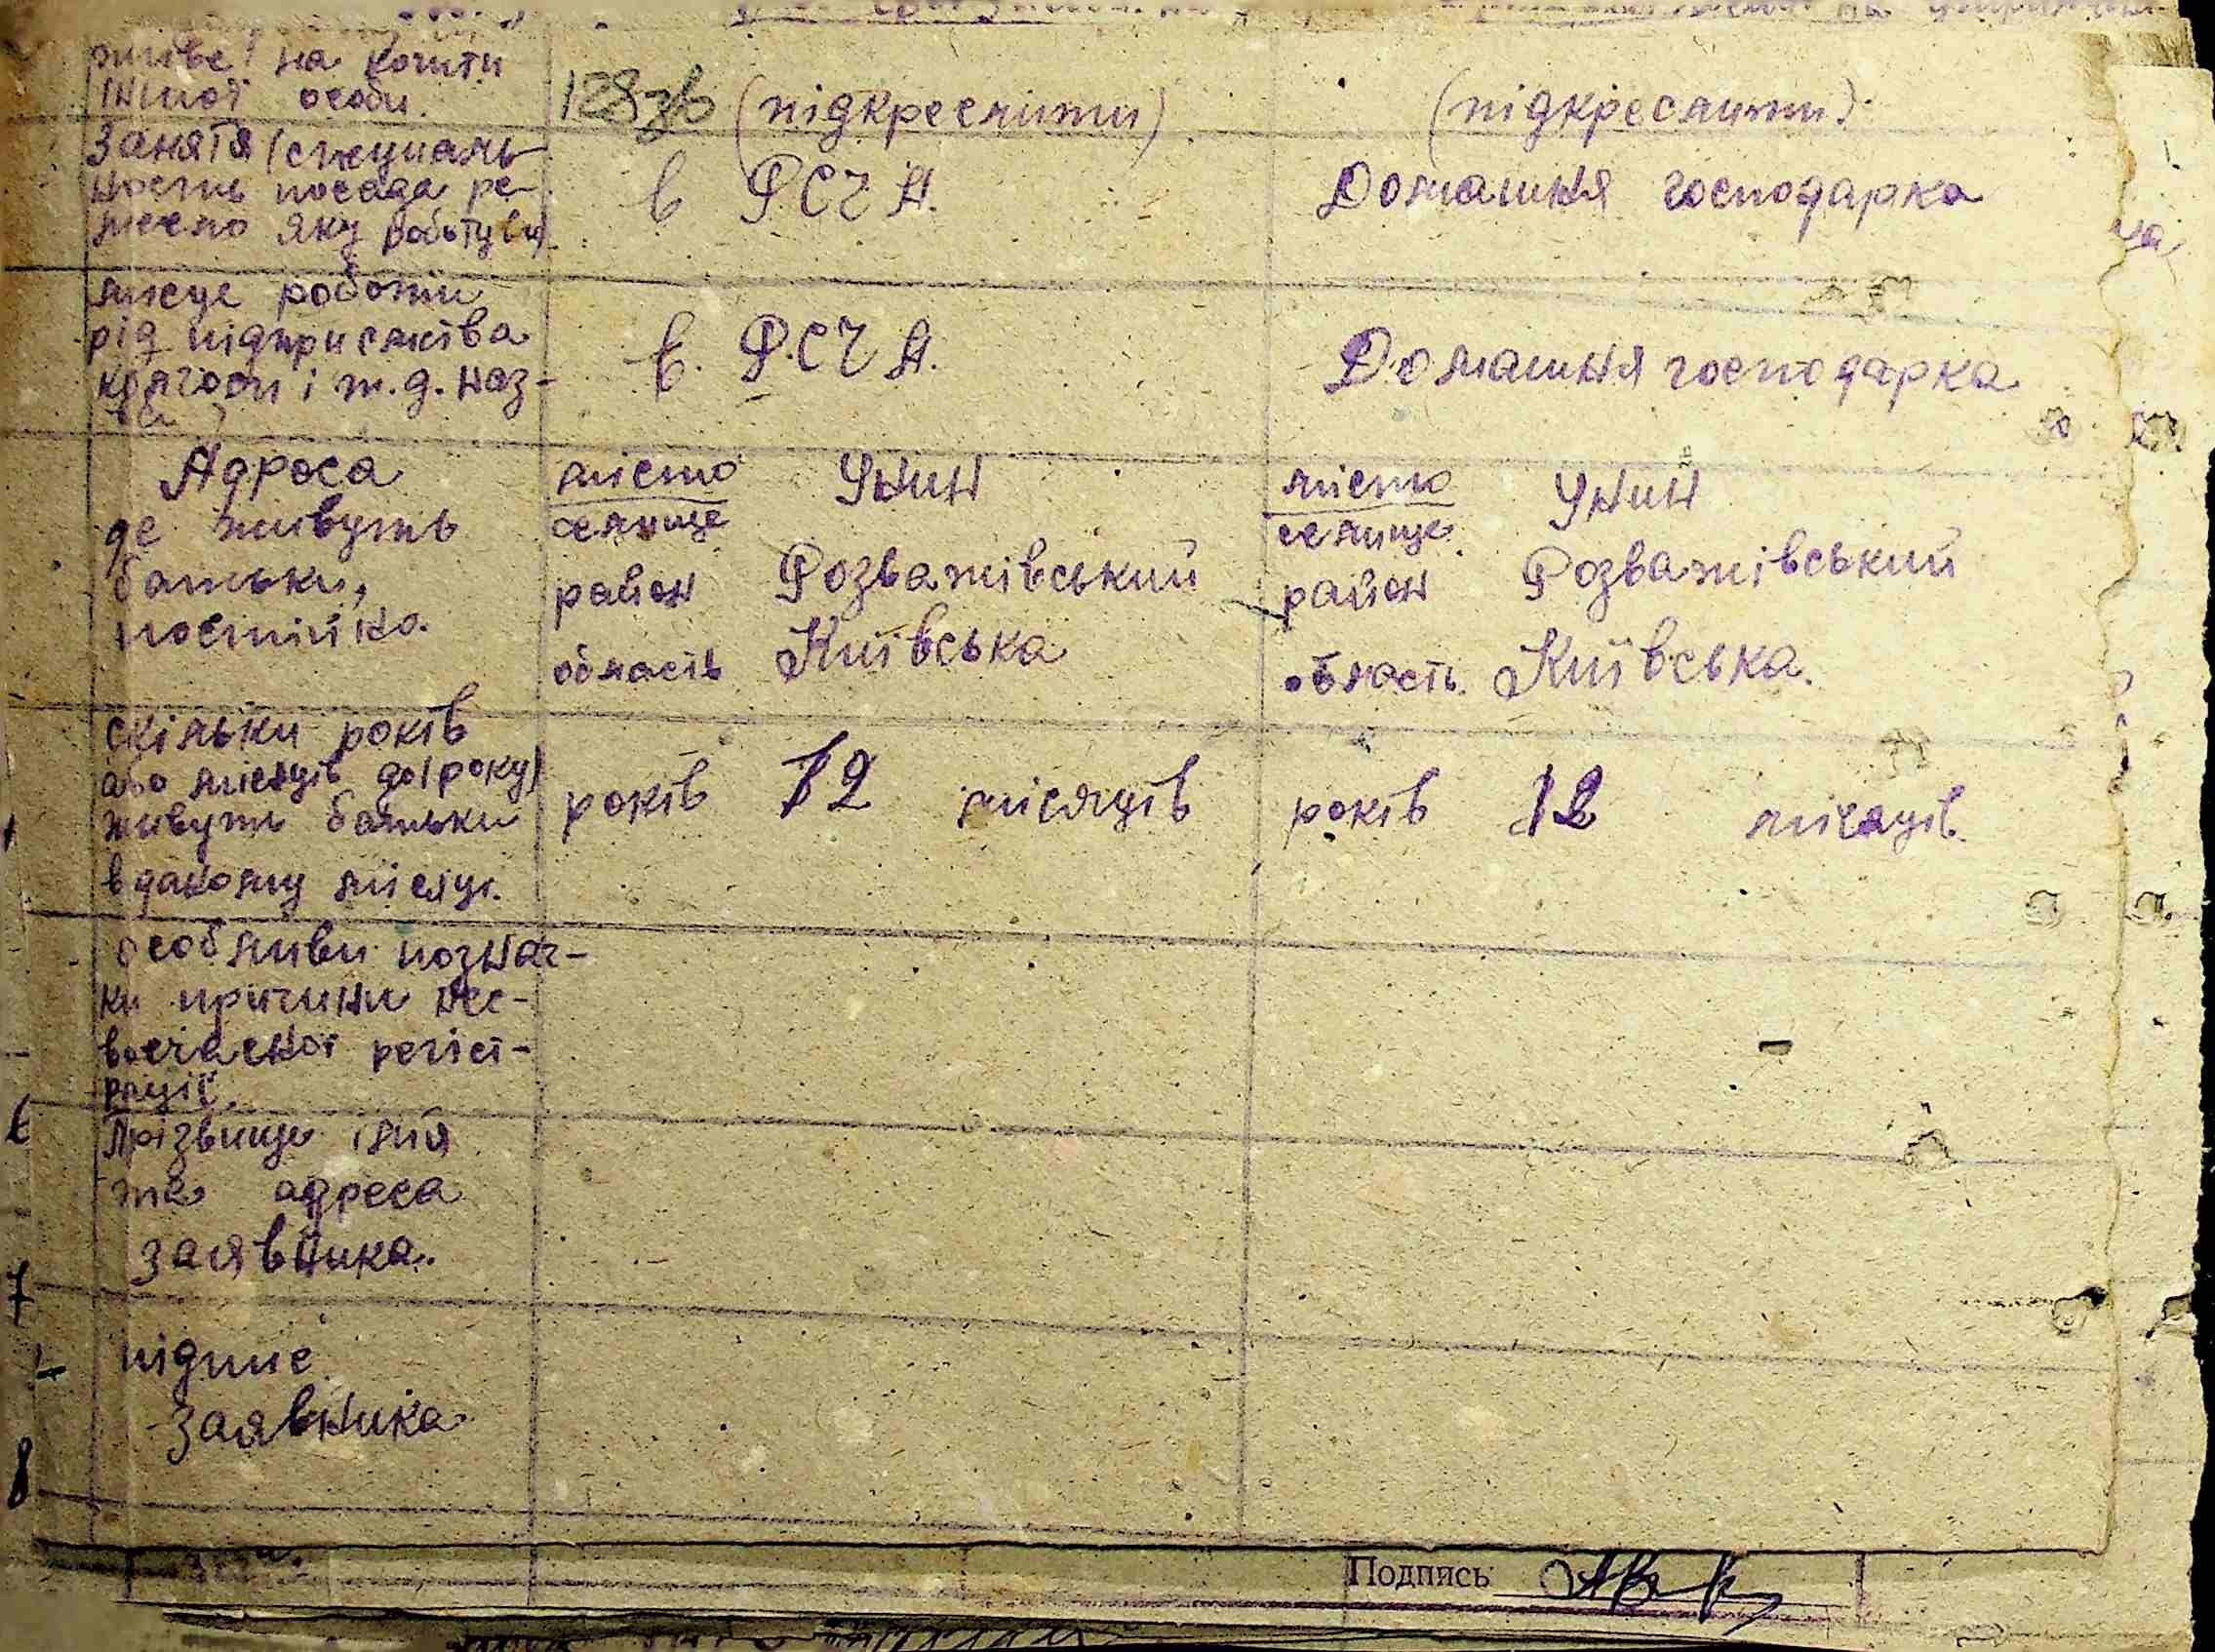 живе на кошти
іншої особи.
(підкреслити)
(підкреслити)
Заняття (спеціаль-
ность посада ре-
месло яку роботу ви)
в Р.С.Ч.А.
Домашня господарка
місце роботи
рід підприємства
колгосп і т.д. наз-
ва)
в. Р.С.Ч.А.
Домашня господарка
Адреса
де живуть
батьки,
постійно.
місто Унин
селище
район Розважівський
область Київська
місто Унин
селище
район Розважівський
область. Київська.
скільки років
або місяців до (року)
живуть батьки
в даному місяці.
років 12 місяців
років 12 місяців.
особливи познач-
ки причини нес-
воєчасної регіст-
рації.
Прізвище імя
та адреса
заявника.
підпис
заявника
6
7
8
Подпись